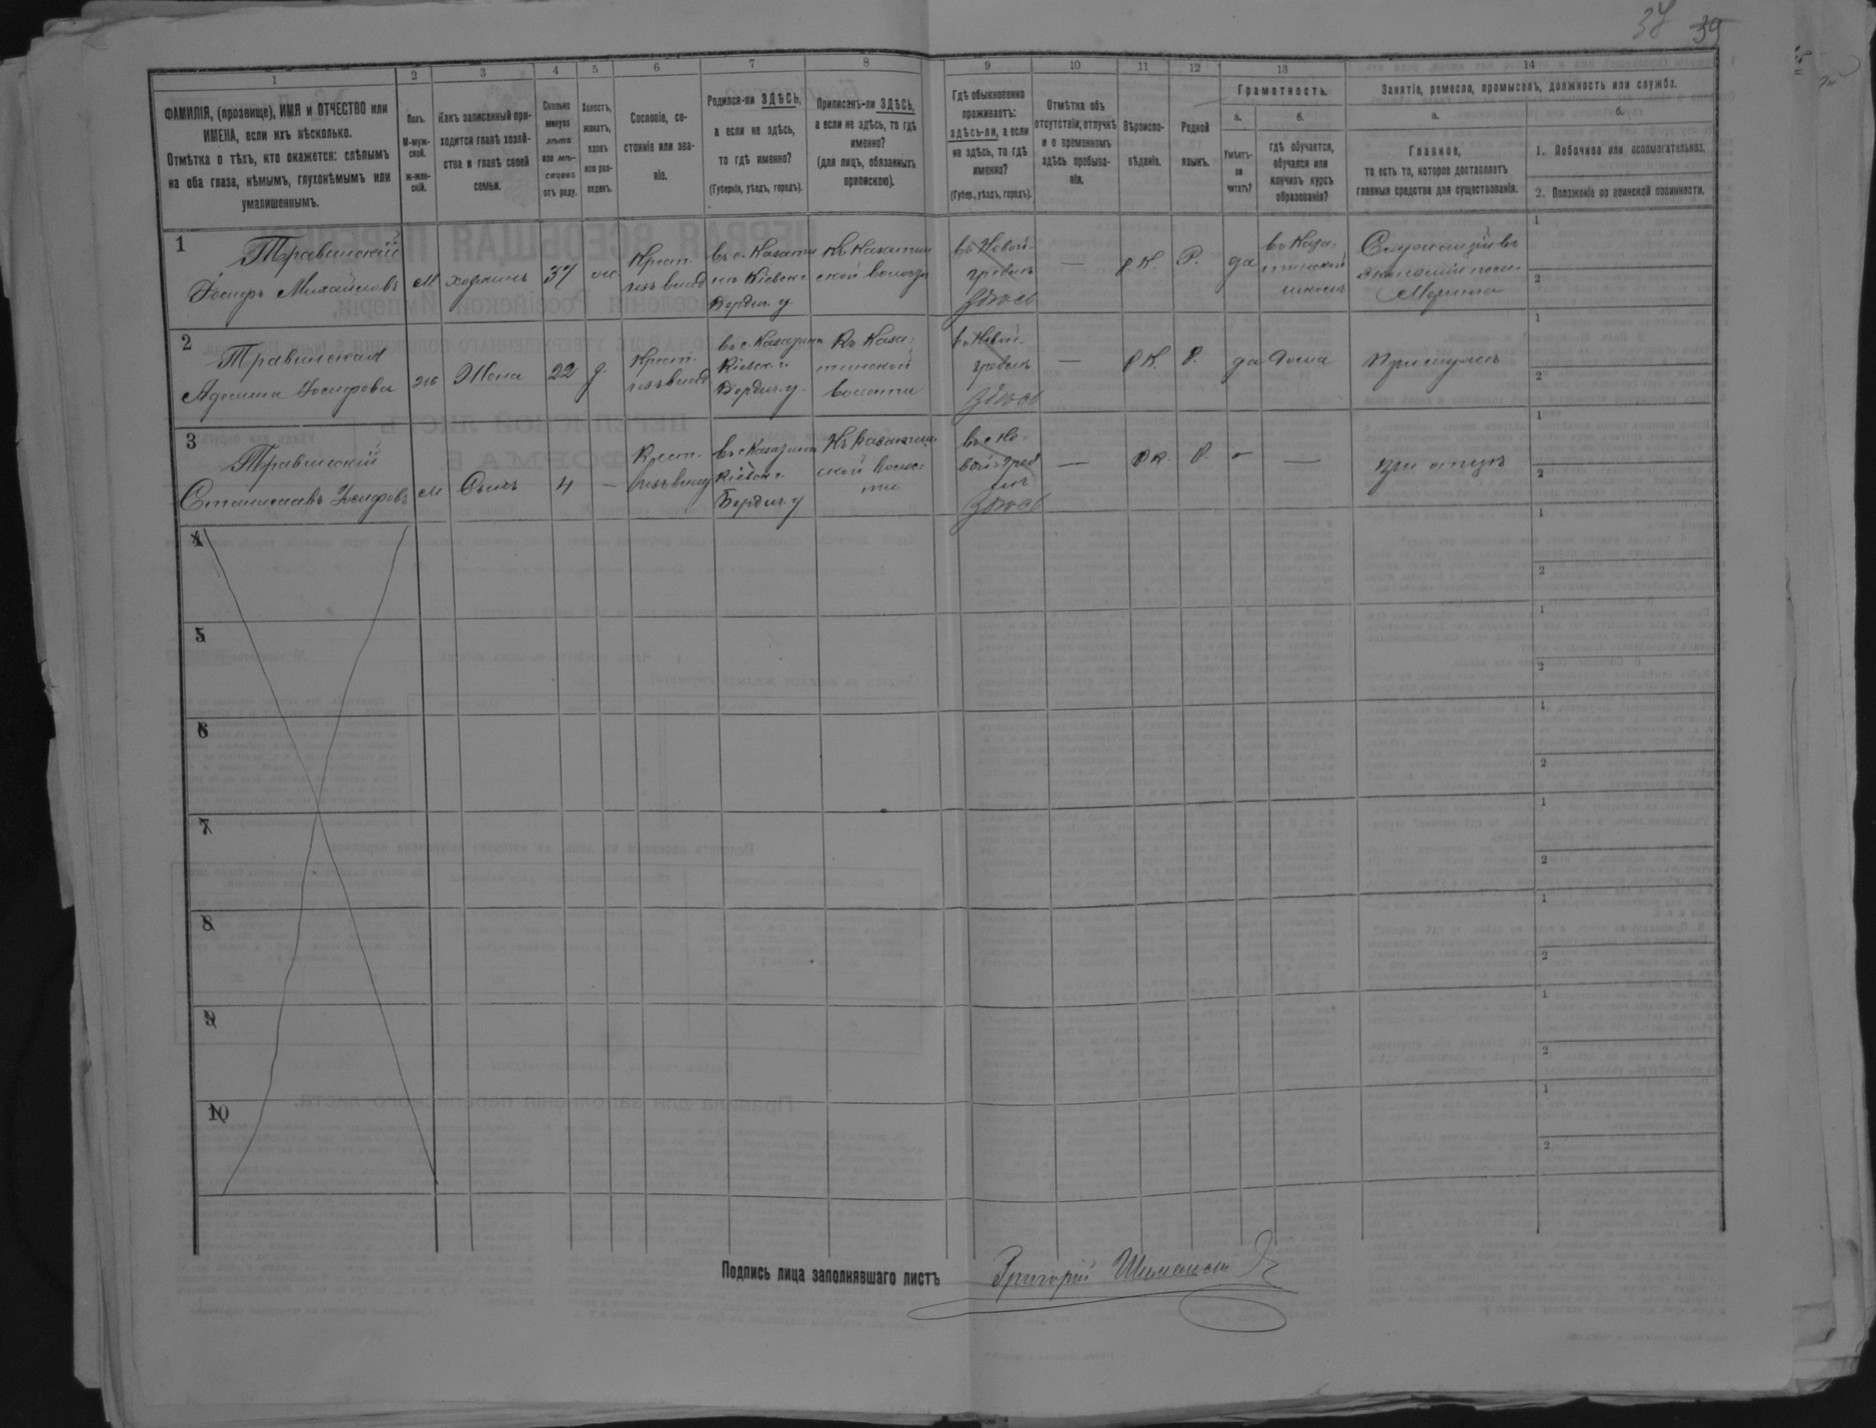 39
1
2
3
4
5
6
7
8
9
10
11
12
13
14
ФАМИЛІЯ, (прозвище), ИМЯ и ОТЧЕСТВО или
ИМЕНА, если ихъ нѣсколько.
Отмѣтка о тѣхъ, кто окажется: слѣпымъ
на оба глаза, нѣмымъ, глухонѣмымъ или
умалишеннымъ.
Полъ.
М-муж-
ской.
ж-жен-
скій.
Какъ записанный при-
ходится главѣ хозяй-
ства и главѣ своей
семьи.
Сколько
минуло
лѣтъ
или мѣ-
сяцевъ
отъ роду.
Холостъ,
женатъ,
вдовъ
или раз-
веденъ.
Сословіе, со-
стояніе или зва-
ніе.
Родился-ли ЗДѢСЬ,
а если не здѣсь,
то гдѣ именно?
(Губернія, уѣздъ, городъ).
Приписанъ-ли ЗДѢСЬ,
а если не здѣсь, то гдѣ
именно?
(для лицъ, обязанныхъ
припискою).
Гдѣ обыкновенно
проживаетъ:
здѣсь-ли, а если
не здѣсь, то гдѣ
именно?
(Губер., уѣздъ, городъ).
Отмѣтка объ
отсутствіи, отлучкѣ
и о временномъ
здѣсь пребыва-
ніи.
Вѣроиспо-
вѣданіе.
Родной
языкъ.
Грамотность.
а.
б.
Умѣетъ-
ли
читать?
гдѣ обучается,
обучался или
кончилъ курсъ
образованія?
Занятіе, ремесло, промыселъ, должность или служба.
а.
б.
Главное,
то есть то, которое доставляетъ
главныя средства для существованія.
1. Побочное или вспомогательное.
2. Положеніе по воинской повинности.
1
Травинскій
Іосифъ Михайловъ
М
хозяинъ
37
ж
Крест.
въ с. Казати
нѣ Кіевск.
Бердич. у.
Къ Казатин
ской волости
въ Новой-
гребли
Здѣсь
—
Р. К.
Р.
да
въ Каза-
тинской
школѣ
Служащій въ
экономіи
1
2
2
Травинская
Іосифова
Ж
Жена
22
з.
Крест.
Кіевск. г.
Бердич. у.
Къ Каза-
тинской
волости
въ Новой-
гребли
Здѣсь
—
Р. К.
Р.
да
дома
При мужѣ
1
2
3
Травинскій
Станиславъ Іосифовъ
М
Сынъ
4
—
Крест.
Кіевск. г.
Бердич. у
Къ Казатин
ской волос-
ти
Здѣсь
—
Р. К.
Р.
—
—
при отцѣ
1
2
4
1
2
5
1
2
6
1
2
7
1
2
8
1
2
9
1
2
10
1
2
Подпись лица заполнявшаго листъ
Григорій